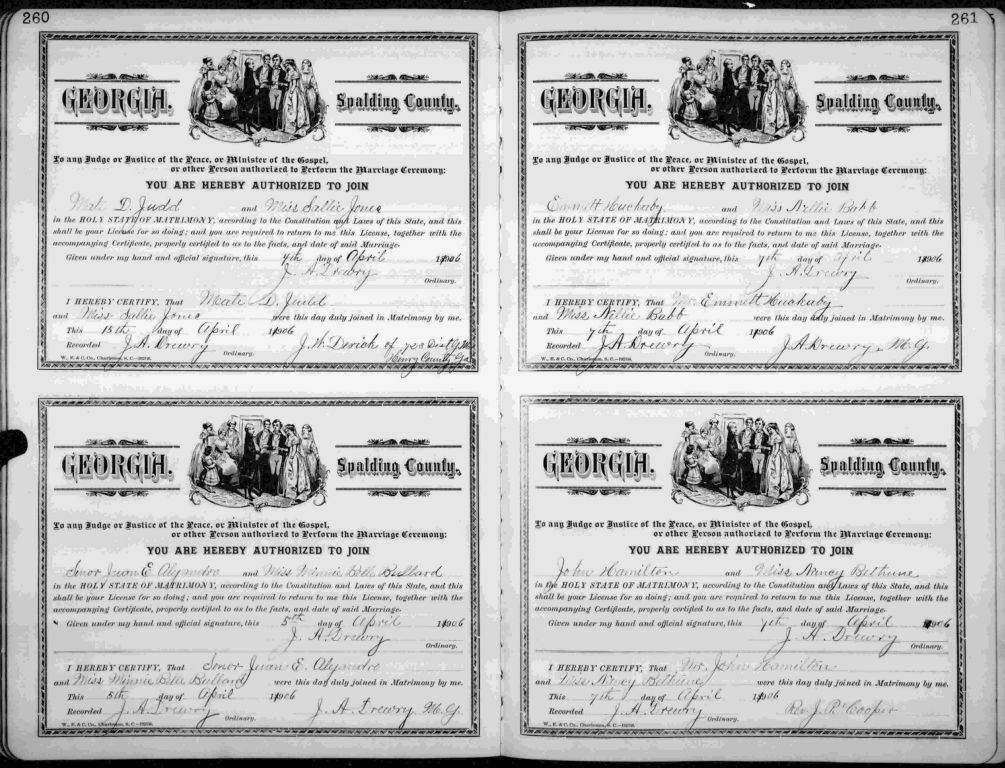 260
GEORGIA. Spalding County.
To any Judge or Justice of the Peace, or Minister of the Gospel,
or other Person authorized to Perform the Marriage Ceremony:
YOU ARE HEREBY AUTHORIZED TO JOIN
D. Judd and Miss Sallie Jones
in the HOLY STATE OF MATRIMONY, according to the Constitution and Laws of this State, and this
shall be your License for so doing; and you are required to return to me this License, together with the
accompanying Certificate, properly certified as to the facts, and date of said Marriage.
Given under my hand and official signature, this day of April 1906
J. A. Drewry
Ordinary.
I HEREBY CERTIFY, That D. Judd
and Miss Sallie Jones were this day duly joined in Matrimony by me.
This 15th day of April 1906
Recorded J. A. Drewry J. W. Derick of 723 Dist G.M.
Ordinary. Henry County Ga
W., E. & C. Co., Charleston, S. C.
GEORGIA. Spalding County.
To any Judge or Justice of the Peace, or Minister of the Gospel,
or other Person authorized to Perform the Marriage Ceremony:
YOU ARE HEREBY AUTHORIZED TO JOIN
Senor Juan E. Alejandro and Miss Minnie Belle Bullard
in the HOLY STATE OF MATRIMONY, according to the Constitution and Laws of this State, and this
shall be your License for so doing; and you are required to return to me this License, together with the
accompanying Certificate, properly certified as to the facts, and date of said Marriage.
Given under my hand and official signature, this 5th day of April 1906
J. A. Drewry
Ordinary.
I HEREBY CERTIFY, That Senor Juan E. Alejandro
and Miss Minnie Belle Bullard were this day duly joined in Matrimony by me.
This 5th day of April 1906
Recorded J. A. Drewry J. A. Drewry M. G.
Ordinary.
W., E. & C. Co., Charleston, S. C.
261
GEORGIA. Spalding County.
To any Judge or Justice of the Peace, or Minister of the Gospel,
or other Person authorized to Perform the Marriage Ceremony:
YOU ARE HEREBY AUTHORIZED TO JOIN
Emmett Huckaby and Miss Nellie Babb
in the HOLY STATE OF MATRIMONY, according to the Constitution and Laws of this State, and this
shall be your License for so doing; and you are required to return to me this License, together with the
accompanying Certificate, properly certified as to the facts, and date of said Marriage.
Given under my hand and official signature, this 7th day of April 1906
J. A. Drewry
Ordinary.
I HEREBY CERTIFY, That Mr. Emmett Huckaby
and Miss Nellie Babb were this day duly joined in Matrimony by me.
This 7th day of April 1906
Recorded J. A. Drewry J. A. Drewry M. G.
Ordinary.
W., E. & C. Co., Charleston, S. C.
GEORGIA. Spalding County.
To any Judge or Justice of the Peace, or Minister of the Gospel,
or other Person authorized to Perform the Marriage Ceremony:
YOU ARE HEREBY AUTHORIZED TO JOIN
John Hamilton and Miss Nancy Bethune
in the HOLY STATE OF MATRIMONY, according to the Constitution and Laws of this State, and this
shall be your License for so doing; and you are required to return to me this License, together with the
accompanying Certificate, properly certified as to the facts, and date of said Marriage.
Given under my hand and official signature, this 7th day of April 1906
J. A. Drewry
Ordinary.
I HEREBY CERTIFY, That Mr. John Hamilton
and Miss Nancy Bethune were this day duly joined in Matrimony by me.
This 7th day of April 1906
Recorded J. A. Drewry Rev J. R. Cooper
Ordinary.
W., E. & C. Co., Charleston, S. C.